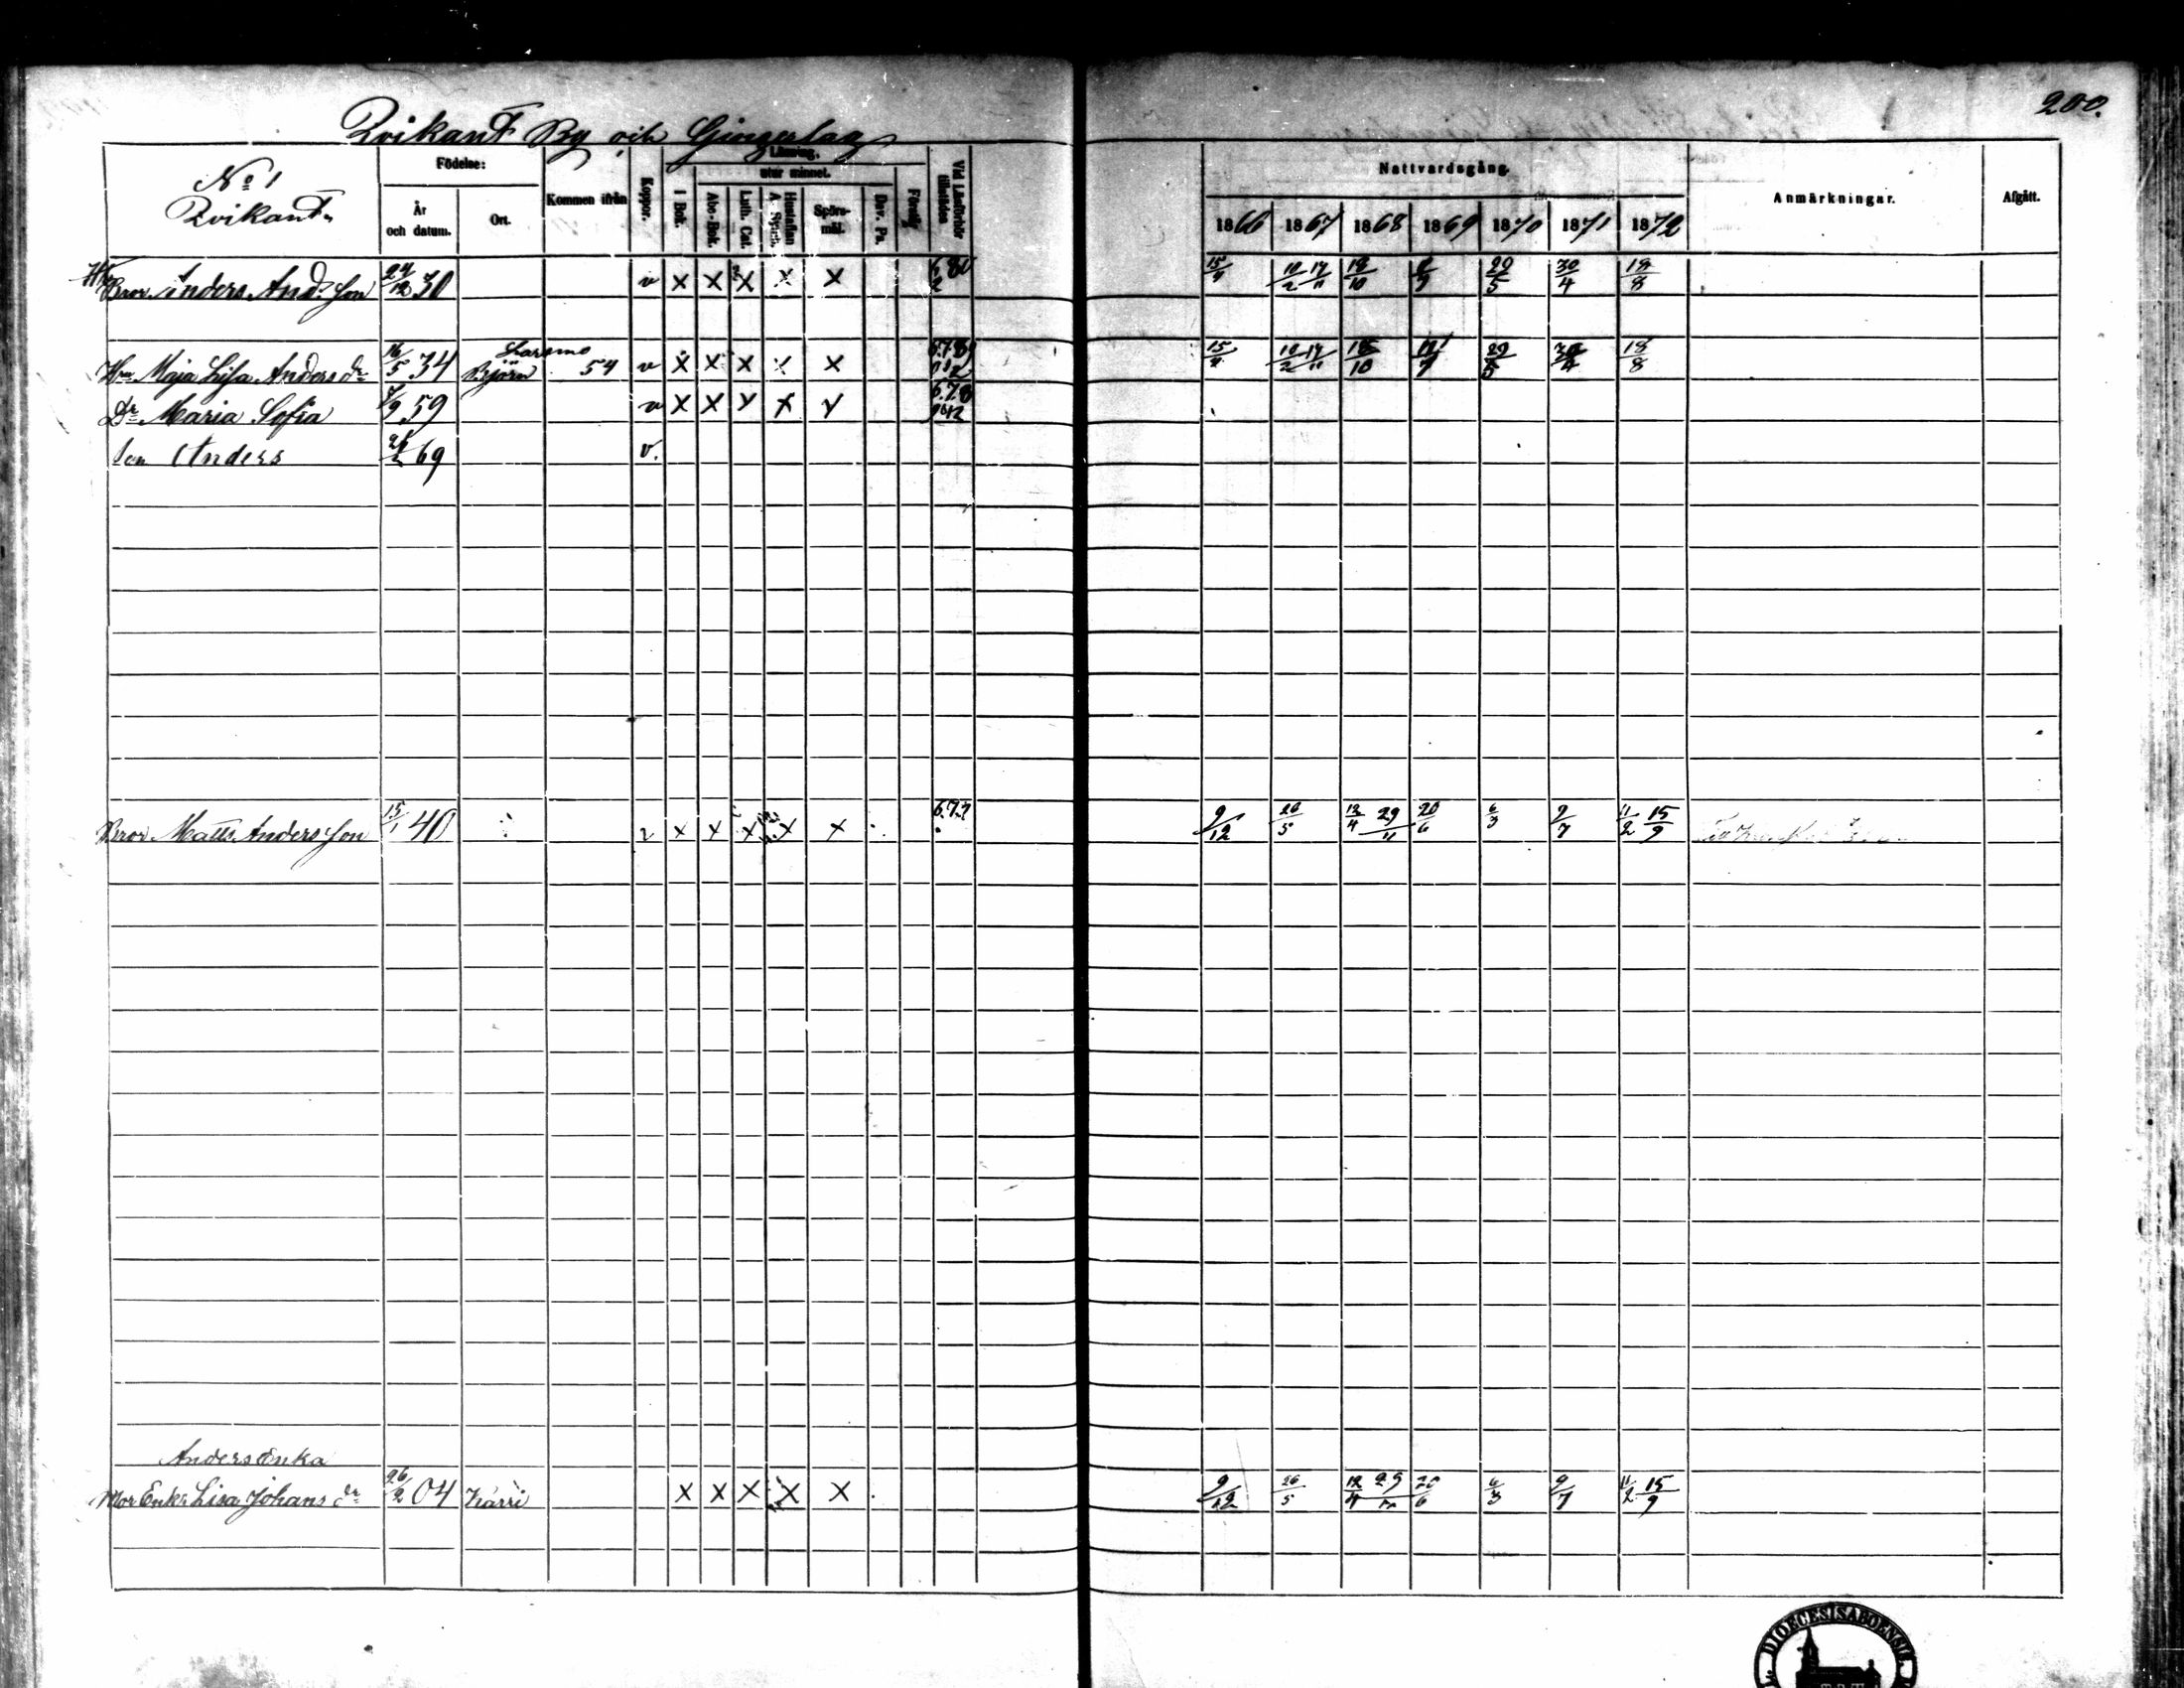 200.
Qvikant By och Gingerlag
No 1
Qvikant
Födelse:
År och datum.
Ort.
Kommen ifrån
Koppor.
Läsning.
I Bok.
utur minnet.
Abc-Bok.
Luth. Cat.
Hustaflan
A. Symb.
Spörsmål.
Dav. Ps.
Förstår
Vid Läsförhör tillstädes
Nattvardsgång.
1866 1867 1868 1869 1870 1871 1872
Anmärkningar.
Afgått.
Bror Anders And. Son 24/12 30 v x x x x x 20/5 30/4 18/8
Larsmo
Hu Maja Lisa Anders dr 16/5 34 Björn 54 v x x x x 29/5 30/4 18/8
Dr Maria Sofia 9 59 v x x x x
Son Anders 69 v.
Bror Matts Anders Son 15/1 40 x x x x x 9/12 26/5 12/4 29/11 20/6 6/3 9/7 11/2 15/9
Anders Enka
Mor Enka Lisa Johans dr 26/2 04 Kärri x x x x x 9/12 26/5 12/4 29 20/6 6/3 9/7 11/2 15/9
DIOECESIS ABOENSIS